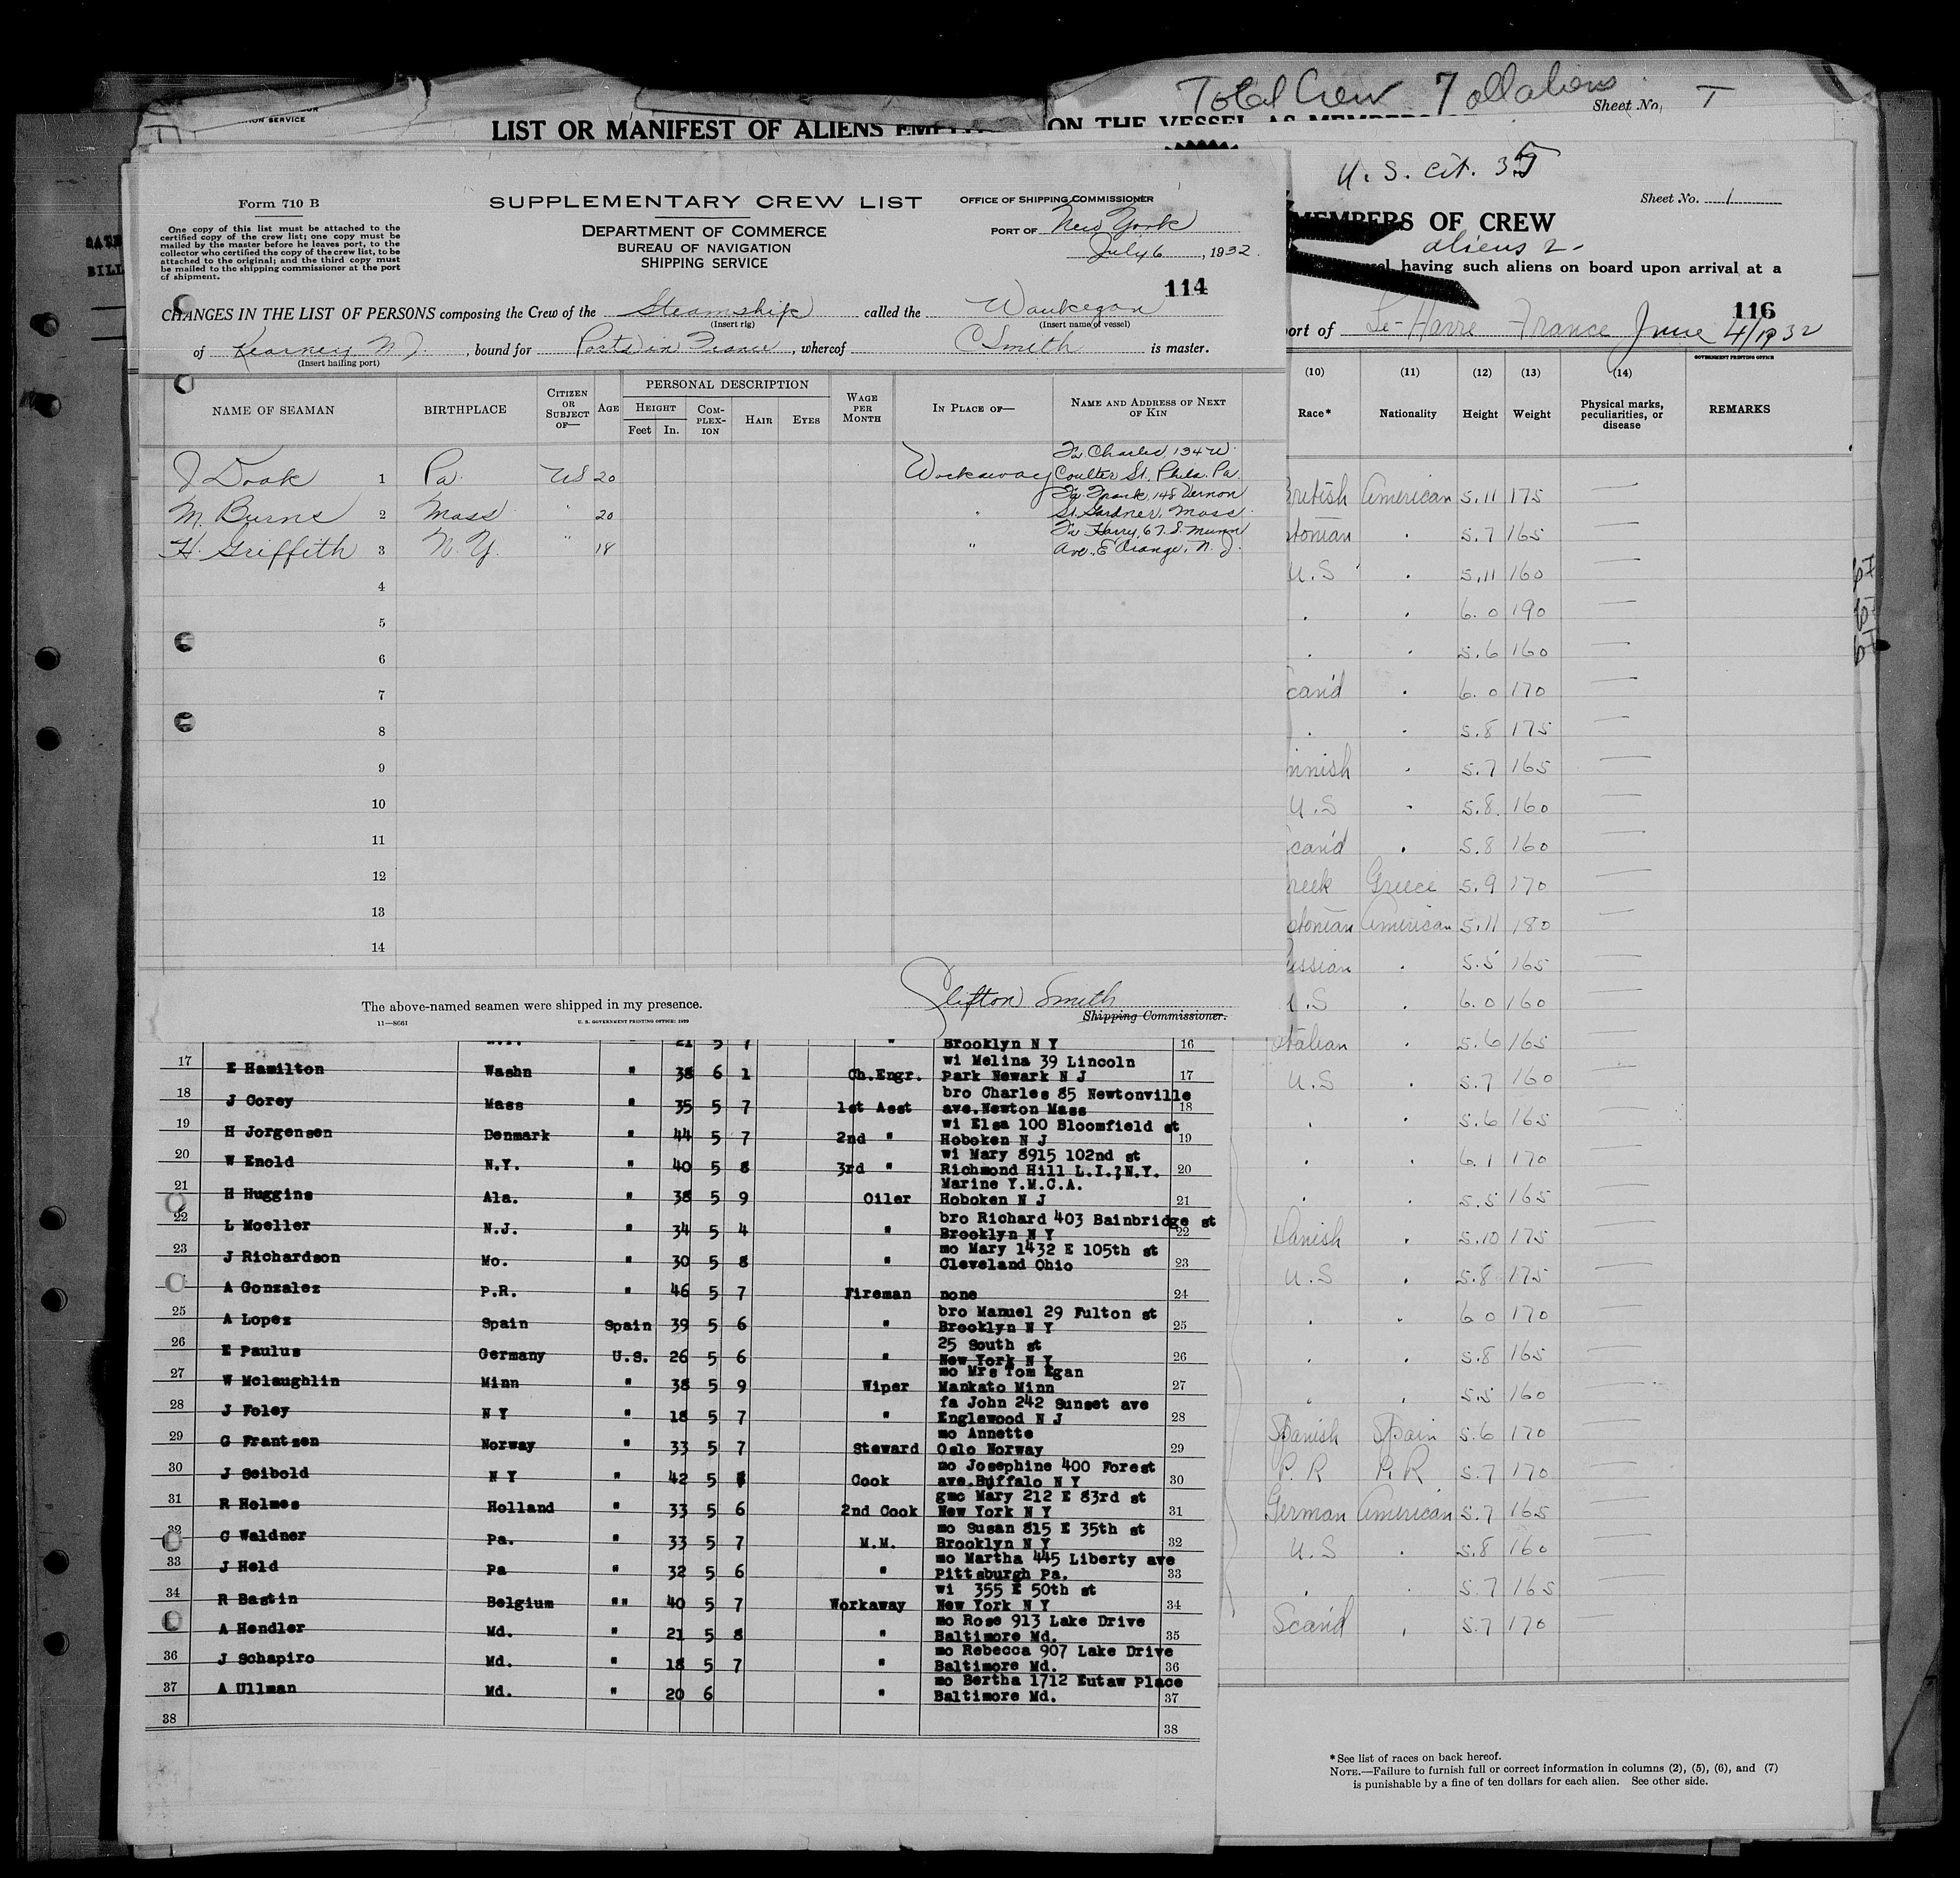 Total Crew 7 all aliens
Sheet No. T
ION SERVICE
LIST OR MANIFEST OF ALIENS ON THE VESSEL AS
U. S. cit. 35
Sheet No. 1
MEMBERS OF CREW
aliens 2 -
having such aliens on board upon arrival at a
116
ort of Le-Havre France June 4/1932
GOVERNMENT PRINTING OFFICE
Form 710 B
One copy of this list must be attached to the
certified copy of the crew list; one copy must be
mailed by the master before he leaves port, to the
collector who certified the copy of the crew list, to be
attached to the original; and the third copy must
be mailed to the shipping commissioner at the port
of shipment.
SUPPLEMENTARY CREW LIST
DEPARTMENT OF COMMERCE
BUREAU OF NAVIGATION
SHIPPING SERVICE
OFFICE OF SHIPPING COMMISSIONER
PORT OF New York
July 6, 1932.
114
CHANGES IN THE LIST OF PERSONS composing the Crew of the Steamship called the Waukegan
(Insert rig) (Insert name of vessel)
of Kearney N.J., bound for Ports in France, whereof C Smith is master.
(Insert hailing port)
NAME OF SEAMAN BIRTHPLACE CITIZEN OR SUBJECT OF— AGE PERSONAL DESCRIPTION HEIGHT Feet In. COMPLEXION HAIR EYES WAGE PER MONTH IN PLACE OF— NAME AND ADDRESS OF NEXT OF KIN
J Dook 1 Pa. US 20 Workaway Fa Charles, 134 W. Coulter St. Phila. Pa.
M. Burns 2 Mass " 20 " Fa Frank, 148 Vernon St. Gardner, Mass.
H. Griffith 3 N.Y. " 18 " Fa Harry, 67 S. Munn Ave., E Orange, N.J.
4
5
6
7
8
9
10
11
12
13
14
The above-named seamen were shipped in my presence.
11—8661 U. S. GOVERNMENT PRINTING OFFICE: 1929
Clifton Smith
Shipping Commissioner.
21 5 7 " Brooklyn N Y 16
17 E Hamilton Washn " 38 6 1 Ch.Engr. wi Melina 39 Lincoln Park Newark N J 17
18 J Corey Mass " 35 5 7 1st Asst bro Charles 85 Newtonville ave.Newton Mass 18
19 H Jorgensen Denmark " 44 5 7 2nd " wi Elsa 100 Bloomfield st Hoboken N J 19
20 W Enold N.Y. " 40 5 8 3rd " wi Mary 8915 102nd st Richmond Hill L.I.,N.Y. 20
21 H Huggins Ala. " 38 5 9 Oiler Marine Y.M.C.A. Hoboken N J 21
22 L Moeller N.J. " 34 5 4 " bro Richard 403 Bainbridge st Brooklyn N Y 22
23 J Richardson Mo. " 30 5 8 " mo Mary 1432 E 105th st Cleveland Ohio 23
A Gonzalez P.R. " 46 5 7 Fireman none 24
25 A Lopez Spain Spain 39 5 6 " bro Manuel 29 Fulton st Brooklyn N Y 25
26 E Paulus Germany U.S. 26 5 6 " 25 South st New York N Y 26
27 W Mclaughlin Minn " 38 5 9 Wiper mo Mrs Tom Egan Mankato Minn 27
28 J Foley N Y " 18 5 7 " fa John 242 Sunset ave Englewood N J 28
29 G Frantzen Norway " 33 5 7 Steward mo Annette Oslo Norway 29
30 J Seibold N Y " 42 5 8 Cook mo Josephine 400 Forest ave.Buffalo N Y 30
31 R Holmes Holland " 33 5 6 2nd Cook gmo Mary 212 E 83rd st New York N Y 31
32 C Waldner Pa. " 33 5 7 M.M. mo Susan 815 E 35th st Brooklyn N Y 32
33 J Held Pa " 32 5 6 " mo Martha 445 Liberty ave Pittsburgh Pa. 33
34 R Bastin Belgium "" 40 5 7 Workaway wi 355 E 50th st New York N Y 34
A Hendler Md. " 21 5 8 " mo Rose 913 Lake Drive Baltimore Md. 35
36 J Schapiro Md. " 18 5 7 " mo Rebecca 907 Lake Drive Baltimore Md. 36
37 A Ullman Md. " 20 6 " mo Bertha 1712 Eutaw Place Baltimore Md. 37
38 38
(10) (11) (12) (13) (14)
Race* Nationality Height Weight Physical marks, peculiarities, or disease REMARKS
British American 5.11 175 —
tonian . 5.7 165 —
U.S . 5.11 160 —
. . 6.0 190 —
. . 5.6 160 —
cand . 6.0 170 —
. . 5.8 175 —
innish . 5.7 165 —
U.S . 5.8 160 —
cand . 5.8 160 —
reek Greece 5.9 170 —
stonian American 5.11 180 —
ussian . 5.5 165 —
U.S . 6.0 160 —
Italian . 5.6 165 —
U.S . 5.7 160 —
. . 5.6 165 —
. . 6.1 170 —
. . 5.5 165 —
Danish . 5.10 175 —
U.S . 5.8 175 —
. . 6 0 170 —
. . 5.8 165 —
. . 5.5 160 —
Spanish Spain 5.6 170 —
P.R P.R 5.7 170 —
German American 5.7 165 —
U.S . 5.8 160 —
. . 5.7 165 —
Scand . 5.7 170 —
*See list of races on back hereof.
NOTE.—Failure to furnish full or correct information in columns (2), (5), (6), and (7)
is punishable by a fine of ten dollars for each alien. See other side.